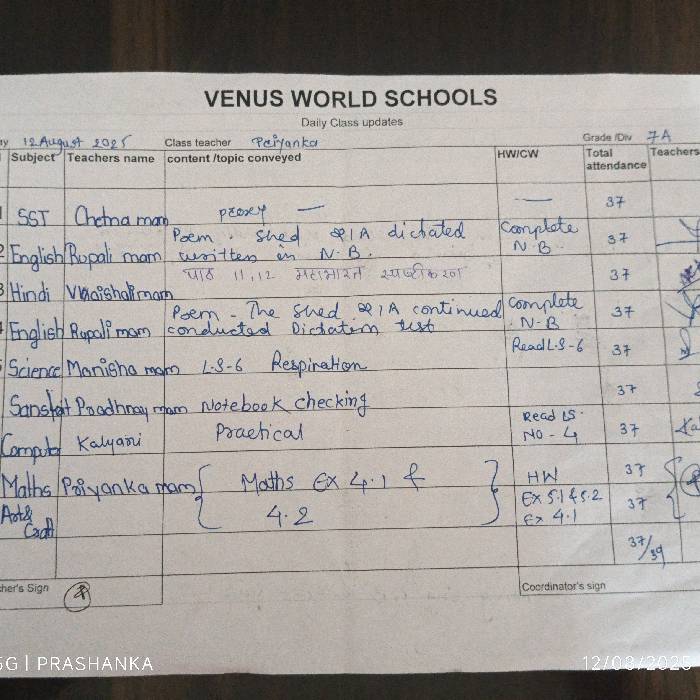 VENUS WORLD SCHOOLS
Daily Class updates
12 August 2025 Class teacher Priyanka Grade /Div 7A
Subject Teachers name content /topic conveyed HW/CW Total attendance Teachers
1 SST Chetna mam proxy — — 37
2 English Rupali mam Poem - Shed Q1A dictated written in N.B. Complete N.B. 37
3 Hindi Vaishali mam पाठ 11,12 महाभारत स्पष्टीकरण 37
English Rupali mam Poem - The Shed Q1A continued conducted Dictation test Complete N-B 37
Science Manisha mam L.S-6 Respiration Read L.S-6 37
Sanskrit mam Notebook checking 37
Computer Kalyani Practical Read LS NO-4 37
Maths Priyanka mam Maths Ex 4.1 & 4.2 HW Ex 5.1 & 5.2 Ex 4.1 37
Art & Craft 37
37/39
her's Sign Coordinator's sign
5G | PRASHANKA 12/08/2025